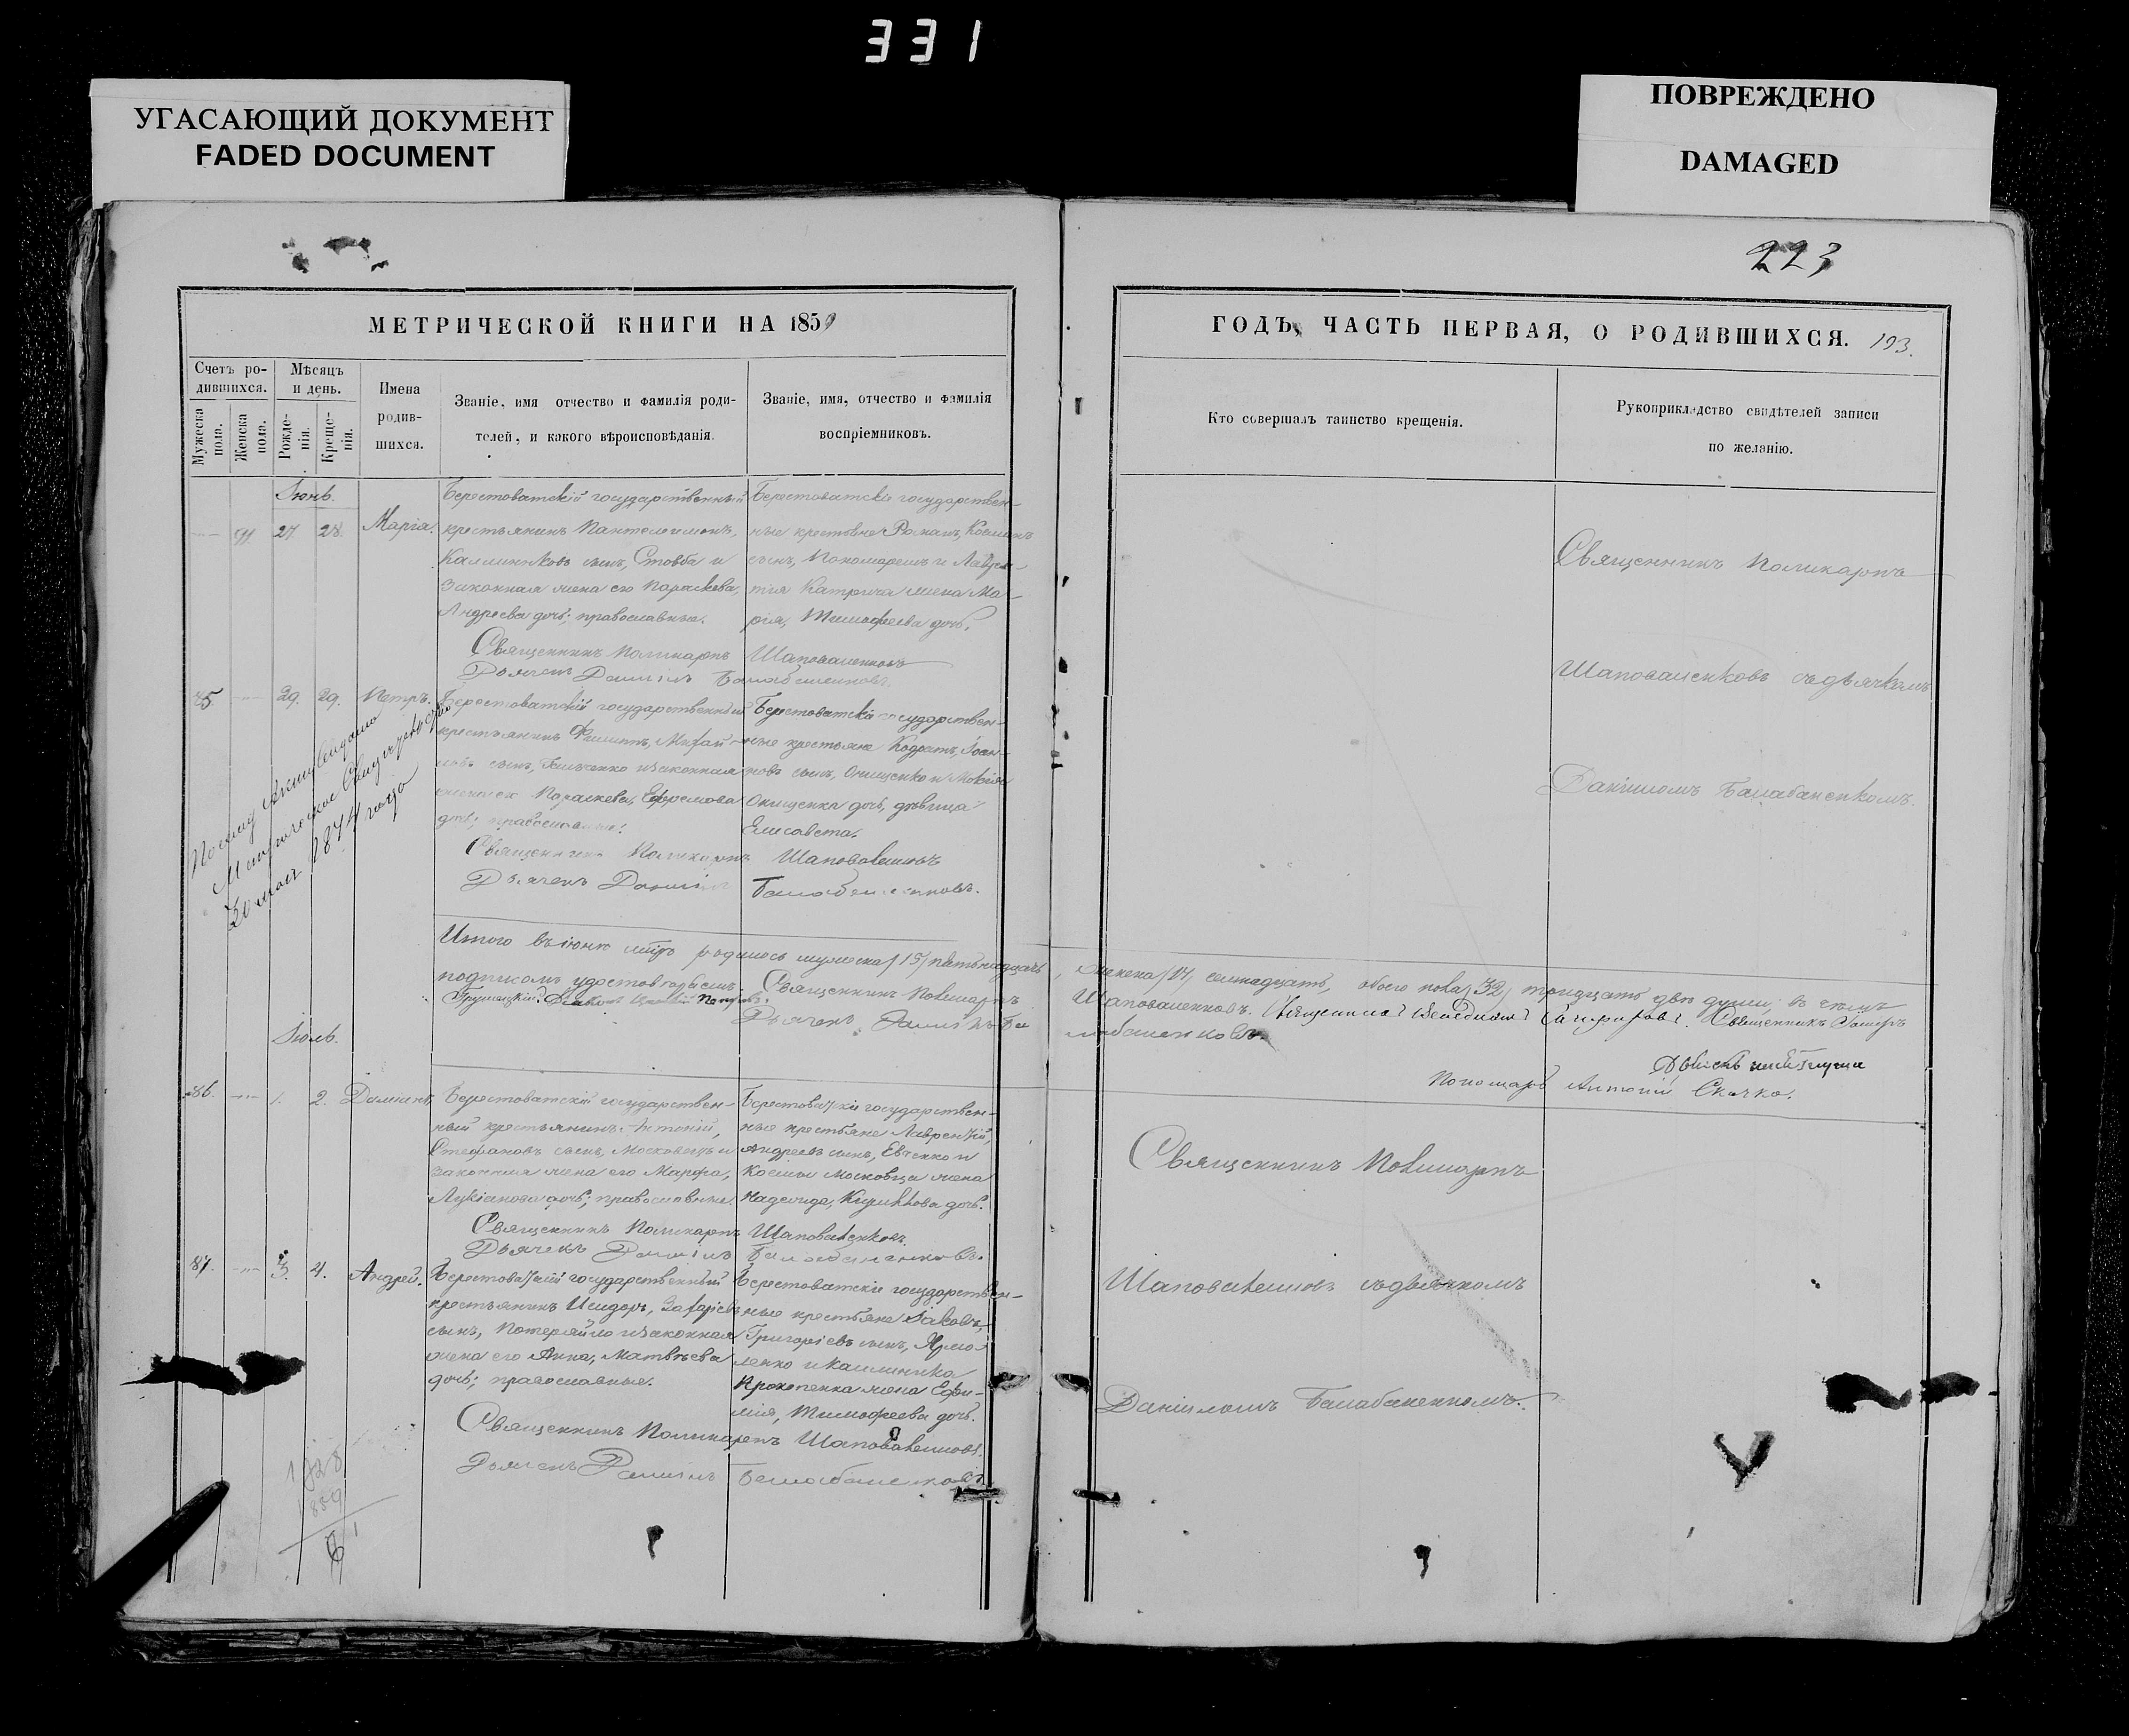 331
УГАСАЮЩИЙ ДОКУМЕНТ
FADED DOCUMENT
ПОВРЕЖДЕНО
DAMAGED
223
МЕТРИЧЕСКОЙ КНИГИ НА 1859
Счетъ ро-
дившихся.
Мужеска
пола.
Женска
пола.
Мѣсяцъ
и день.
Рожде-
нія.
Креще-
нія.
Имена
родив-
шихся.
Званіе, имя отчество и фамилія роди-
телей, и какого вѣроисповѣданія.
Званіе, имя, отчество и фамилія
воспріемниковъ.
Іюнь.
27. 28. Марія.
Берестоватскій государственный
крестьянинъ Пантелеимонъ,
Каллиниковъ сынъ, Стовба и
законная жена его Параскева,
Андреева дочь; православные.
Берестоватскіе государствен-
ные крестьяне Романъ, Косминъ
сынъ, Пономаренъ и Лаврен-
тія Катрича жена Ма-
рія, Тимофеева дочь.
Священникъ Поликарпъ Шаповаленковъ
Дьячекъ Даніилъ Балабаненковъ.
29. 29. Петръ.
Берестоватскій государственный
крестьянинъ Филиппъ, Михаи-
ловъ сынъ, и законная
жена его Параскева, Ефремова
дочь; православные.
Берестоватскіе государствен-
ные крестьяне Кодратъ, Іоан-
новъ сынъ, Онищенко и
Онищенка дочь, дѣвица
Елисавета.
Священникъ Поликарпъ Шаповаленковъ
Дьячекъ Даніилъ Балабаненковъ.
Метрическое Свидетельство
1874 года
Итого въ іюнѣ родилось мужеска /15/ пятьнадцать
подписомъ удостовѣряемъ. Священникъ Поликарпъ
Дьячекъ Даніилъ Ба
Іюль.
86. 1. 2. Доміанъ.
Берестоватскій государствен-
ный крестьянинъ Антоній,
Стефановъ сынъ, Московецъ и
законная жена его Марфа,
Лукіанова дочь; православные.
Берестоватскіе государствен-
ные крестьяне Лаврентій,
Андреевъ сынъ, Евченко и
Космы Московца жена
Надежда, дочь.
Священникъ Поликарпъ Шаповаленковъ.
Дьячекъ Даніилъ Балабаненковъ.
87. 3. 4. Андрей.
Берестоватскій государственный
крестьянинъ Исидоръ, Захаріевъ
сынъ, Потеряйло и законная
жена его Анна, Матвѣева
дочь; православные.
Берестоватскіе государствен-
ные крестьяне Іаковъ,
Григоріевъ сынъ, Ярмо-
ленко и Каллиника
Прокопенка жена Ефи-
мія, Тимофеева дочь.
Священникъ Поликарпъ Шаповаленковъ.
Дьячекъ Даніилъ Балабаненковъ.
1928
1859
ГОДЪ, ЧАСТЬ ПЕРВАЯ, О РОДИВШИХСЯ. 193.
Кто совершалъ таинство крещенія.
Рукоприкладство свидѣтелей записи
по желанію.
Священникъ Поликарпъ
Шаповаленковъ съ дьячкомъ
Даніиломъ Балабаненкомъ.
, женска /17/ семнадцать, обоего пола /32/ тридцать двѣ души; въ чемъ
Шаповаленковъ. Священникъ
лабаненковъ.
Пономарь Антоній Скачко.
Священникъ Поликарпъ
Шаповаленковъ съ дьячкомъ
Даніиломъ Балабаненкомъ.